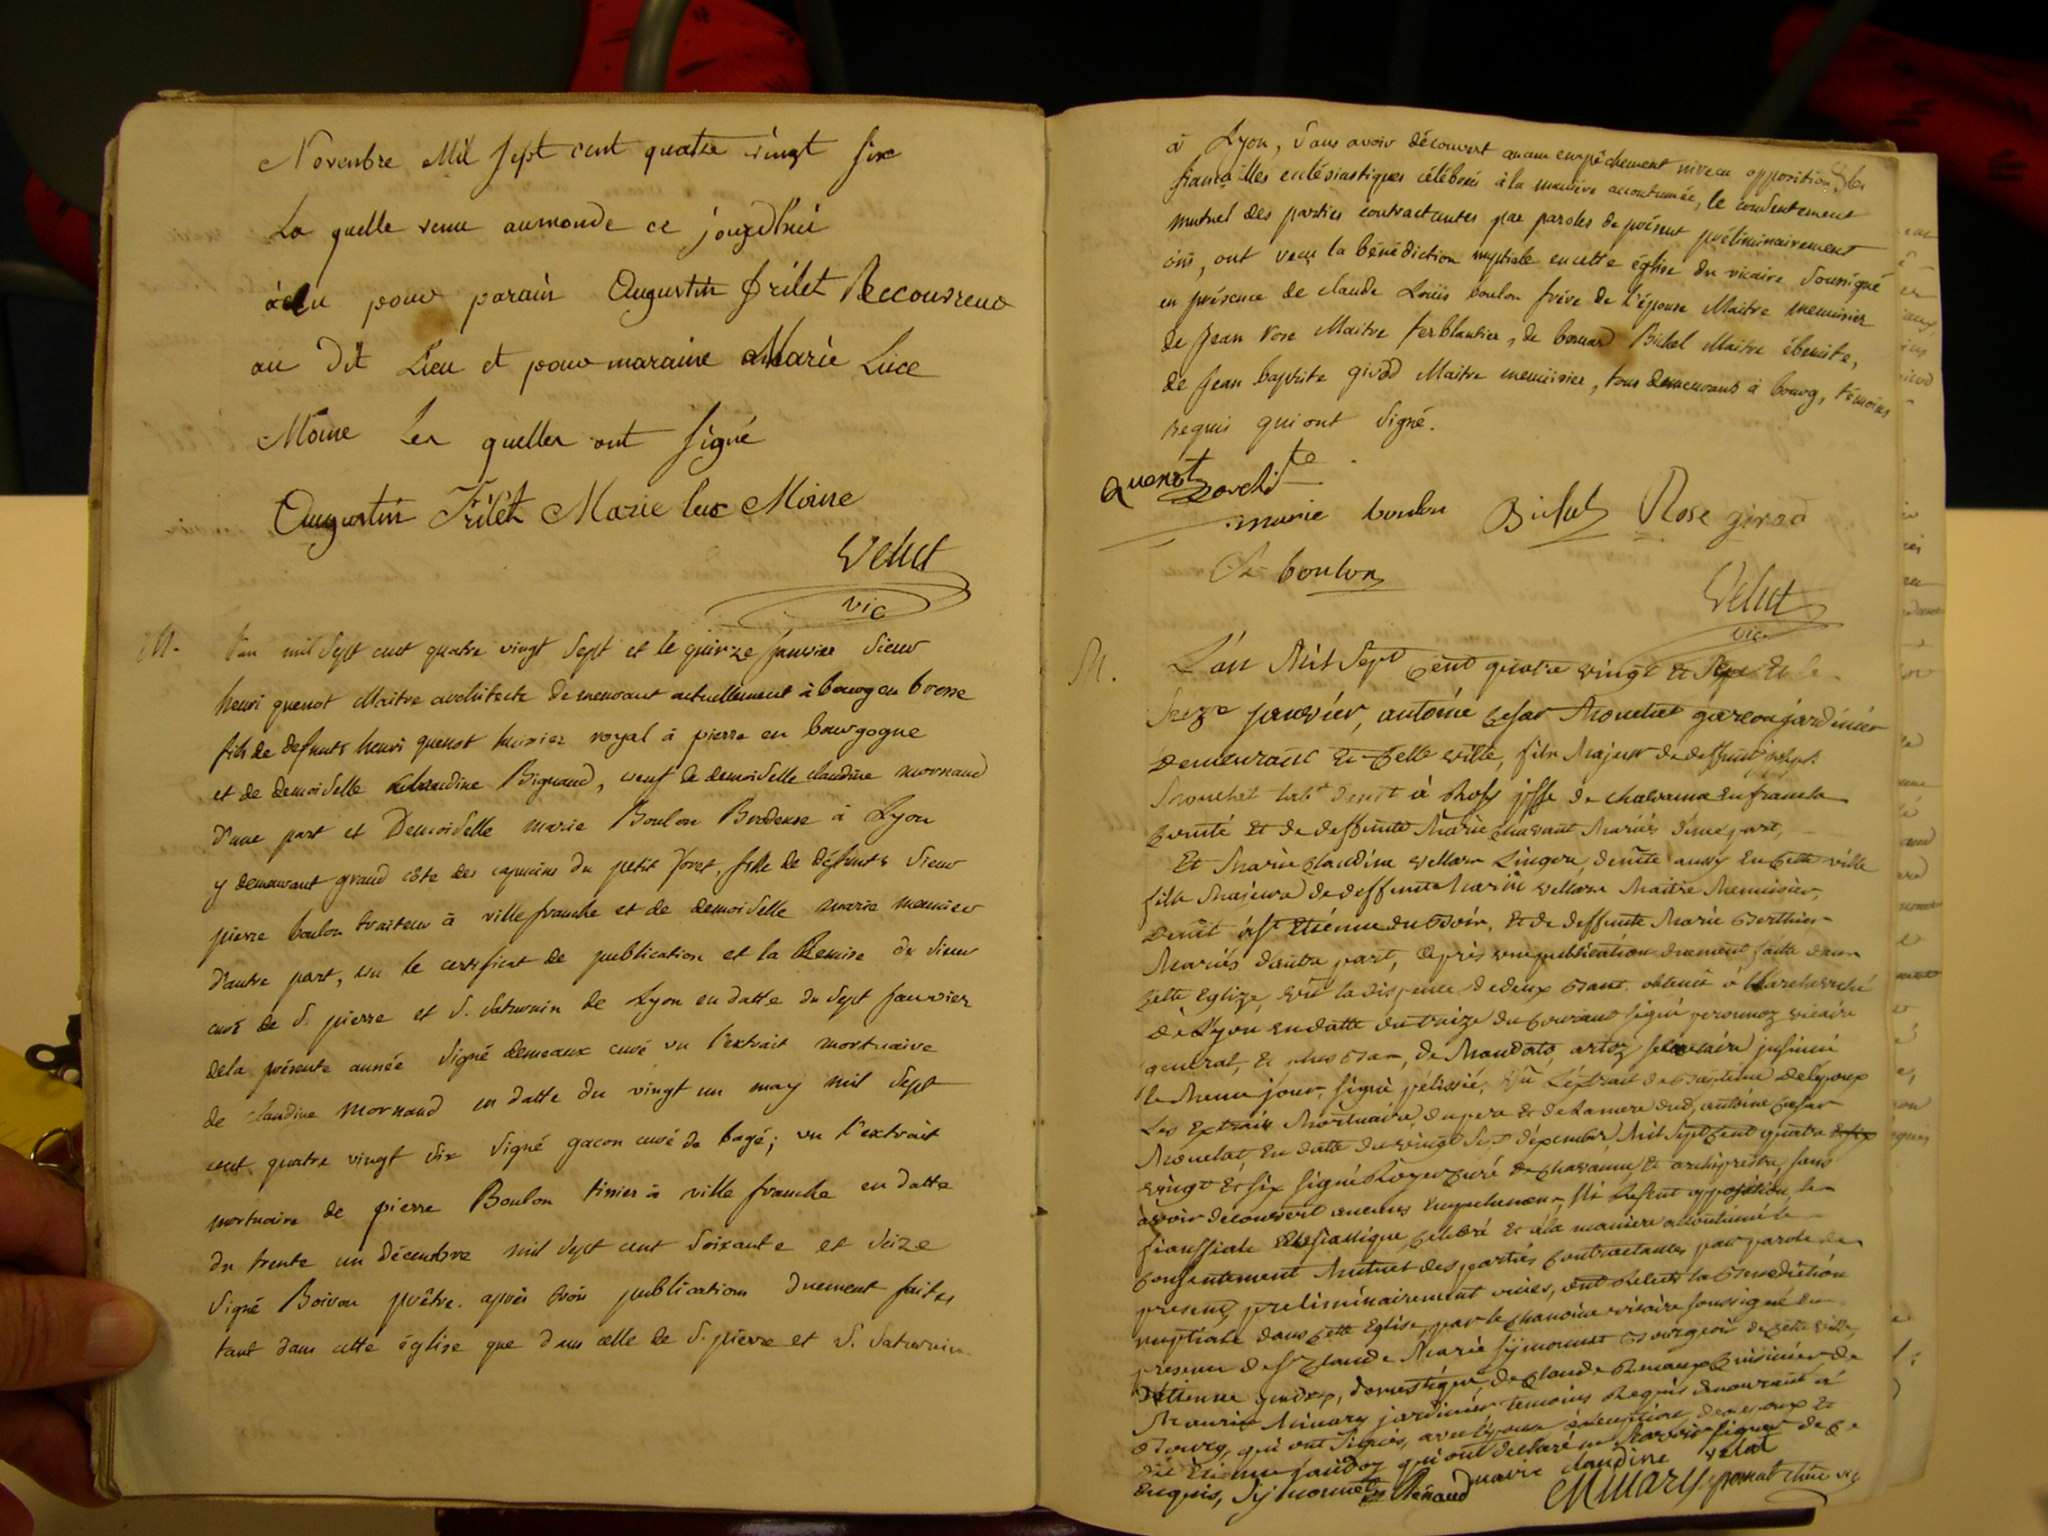 Novembre Mil sept cent quatre vingt six
La quelle venu aumonde ce jourdhui
a eu pour parain Augustin frilet Recouvreur
au Dit Lieu et pour maraine Marie Luce
Moine Les quelles ont signé
Augustin Frilet Marie luc Moine
Velut
vic
M. l'an mil sept cent quatre vingt sept et le quinze janvier sieur
henri quenot Maitre architecte demeurant actuellement à bourg en bresse
fils de defunts henri quenot royal à pierre en bourgogne
et de demoiselle claudine Bignaud, veuf de demoiselle claudine mornaud
d'une part et Demoiselle marie Boulon Brodeuse à Lyon
y demeurant grand côte des capucins du petit foret, fille de défunts sieur
pierre boulon traiteur à villefranche et de demoiselle marie meunier
d'autre part, vu le certificat de publication et la Remise du sieur
curé de S. pierre et S. saturnin de Lyon en datte du sept janvier
dela présente année signé demeaux curé vu l'extrait mortuaire
de claudine mornaud en datte du vingt un may mil sept
cent quatre vingt six signé gacon curé de bagé; vu l'extrait
mortuaire de pierre Boulon à ville franche en datte
du trente un décembre mil sept cent soixante et seize
signé Boivon prêtre. après trois publications duement faites
tant dans cette église que dans celle de S. pierre et S. Saturnin
à Lyon, sans avoir découvert aucun empêchement ni reçu opposition, les
fiançailles eclésiastiques célébrés à la manière accoutumée, le consentement
mutuel des parties contractantes par paroles de présent préliminairement
oüi, ont reçu la bénédiction nuptiale en cette église du vicaire soussigné
en présence de claude Louis boulon frère de l'épouse Maitre menuisier
de Jean rose Maitre ferblantier, de bernard Bichel Maitre ébeniste,
de Jean baptiste girod Maitre menuisier, tous demeurants à bourg, témoins
requis qui ont signé.
quenot archite
marie boulon Bichel Rose girod
boulon
Velut
vic
M. L'an Mil sept cent quatre vingt et sept et le
seize janvier, antoine cesar Mouchet garcon jardinier
demeurant en cette ville, fils Majeur de deffunt joseph
Mouchet à jisse de chavanna en franche
comté et de deffunte Marie chavant Mariés d'une part,
Et Marie claudine vellar Lingere, aussy en cette ville
fille Majeure de deffunt vellar Maitre Menuisier,
à st Etienne du Bois, et de deffunte Marie Berthier
Mariés d'autre part, après une publication duement faitte dans
cette Eglize, vu la dispense de deux bans obtenue à l'archevéché
de Lyon en datte du treize du courant signé vicaire
general, et plus bas, de Mandato, secretaire, insinué
le Meme jour, signé pélissié, vu l'extrait de Baptême de lepoux
Les Extrais Mortuaire, du pere et de la mere dud. antoine cesar
Mouchet en datte du vingt sept décembre Mil sept cent quatre
vingt et six signé Royer curé de chavanne et archiprestre, sans
avoir decouvert aucuns empechement, ni Resçu opposition, les
fiansiale celebré et à la maniere accoutumé le
consentement Mutuel des parties contractantes par parole de
present preliminairement ouies, ont Resçu la Benediction
nuptiale dans cette Eglise, par le chanoine vicaire soussigné en
presence de sr claude Marie symonnet Bourgeois de cette ville,
d'Etienne, domestique, de claude Renaux cuisinier de
Maurice Minary jardinier temoins Requis demeurant à
Bourg, qui ont signés, avec l'epouse exception de l'epoux et
dit Etienne qui ont declaré ne savoir signer de ce
Enquis, Symonnet Renaud marie claudine velat
Minary